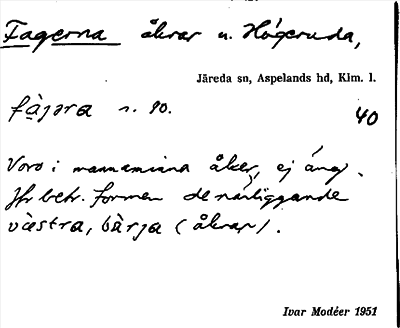 Fagerna åkrar u. Högeruda,
Järeda sn, Aspelands hd, Klm. l.
fàjəra n. 90. 40
Voro i mannaminna åker, ej äng.
Jfr betr. formen de närliggande
västra, bàrja (åkrar).
Ivar Modéer 1951